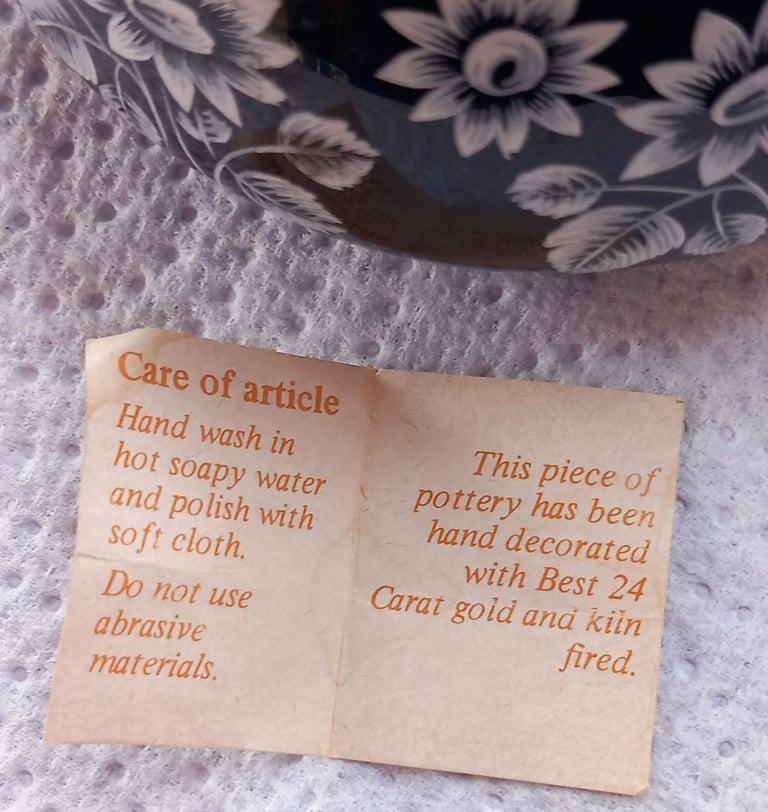 Care of article
Hand wash in
hot soapy water
and polish with
soft cloth.
Do not use
abrasive
materials.
This piece of
pottery has been
hand decorated
with Best 24
Carat gold and kiln
fired.